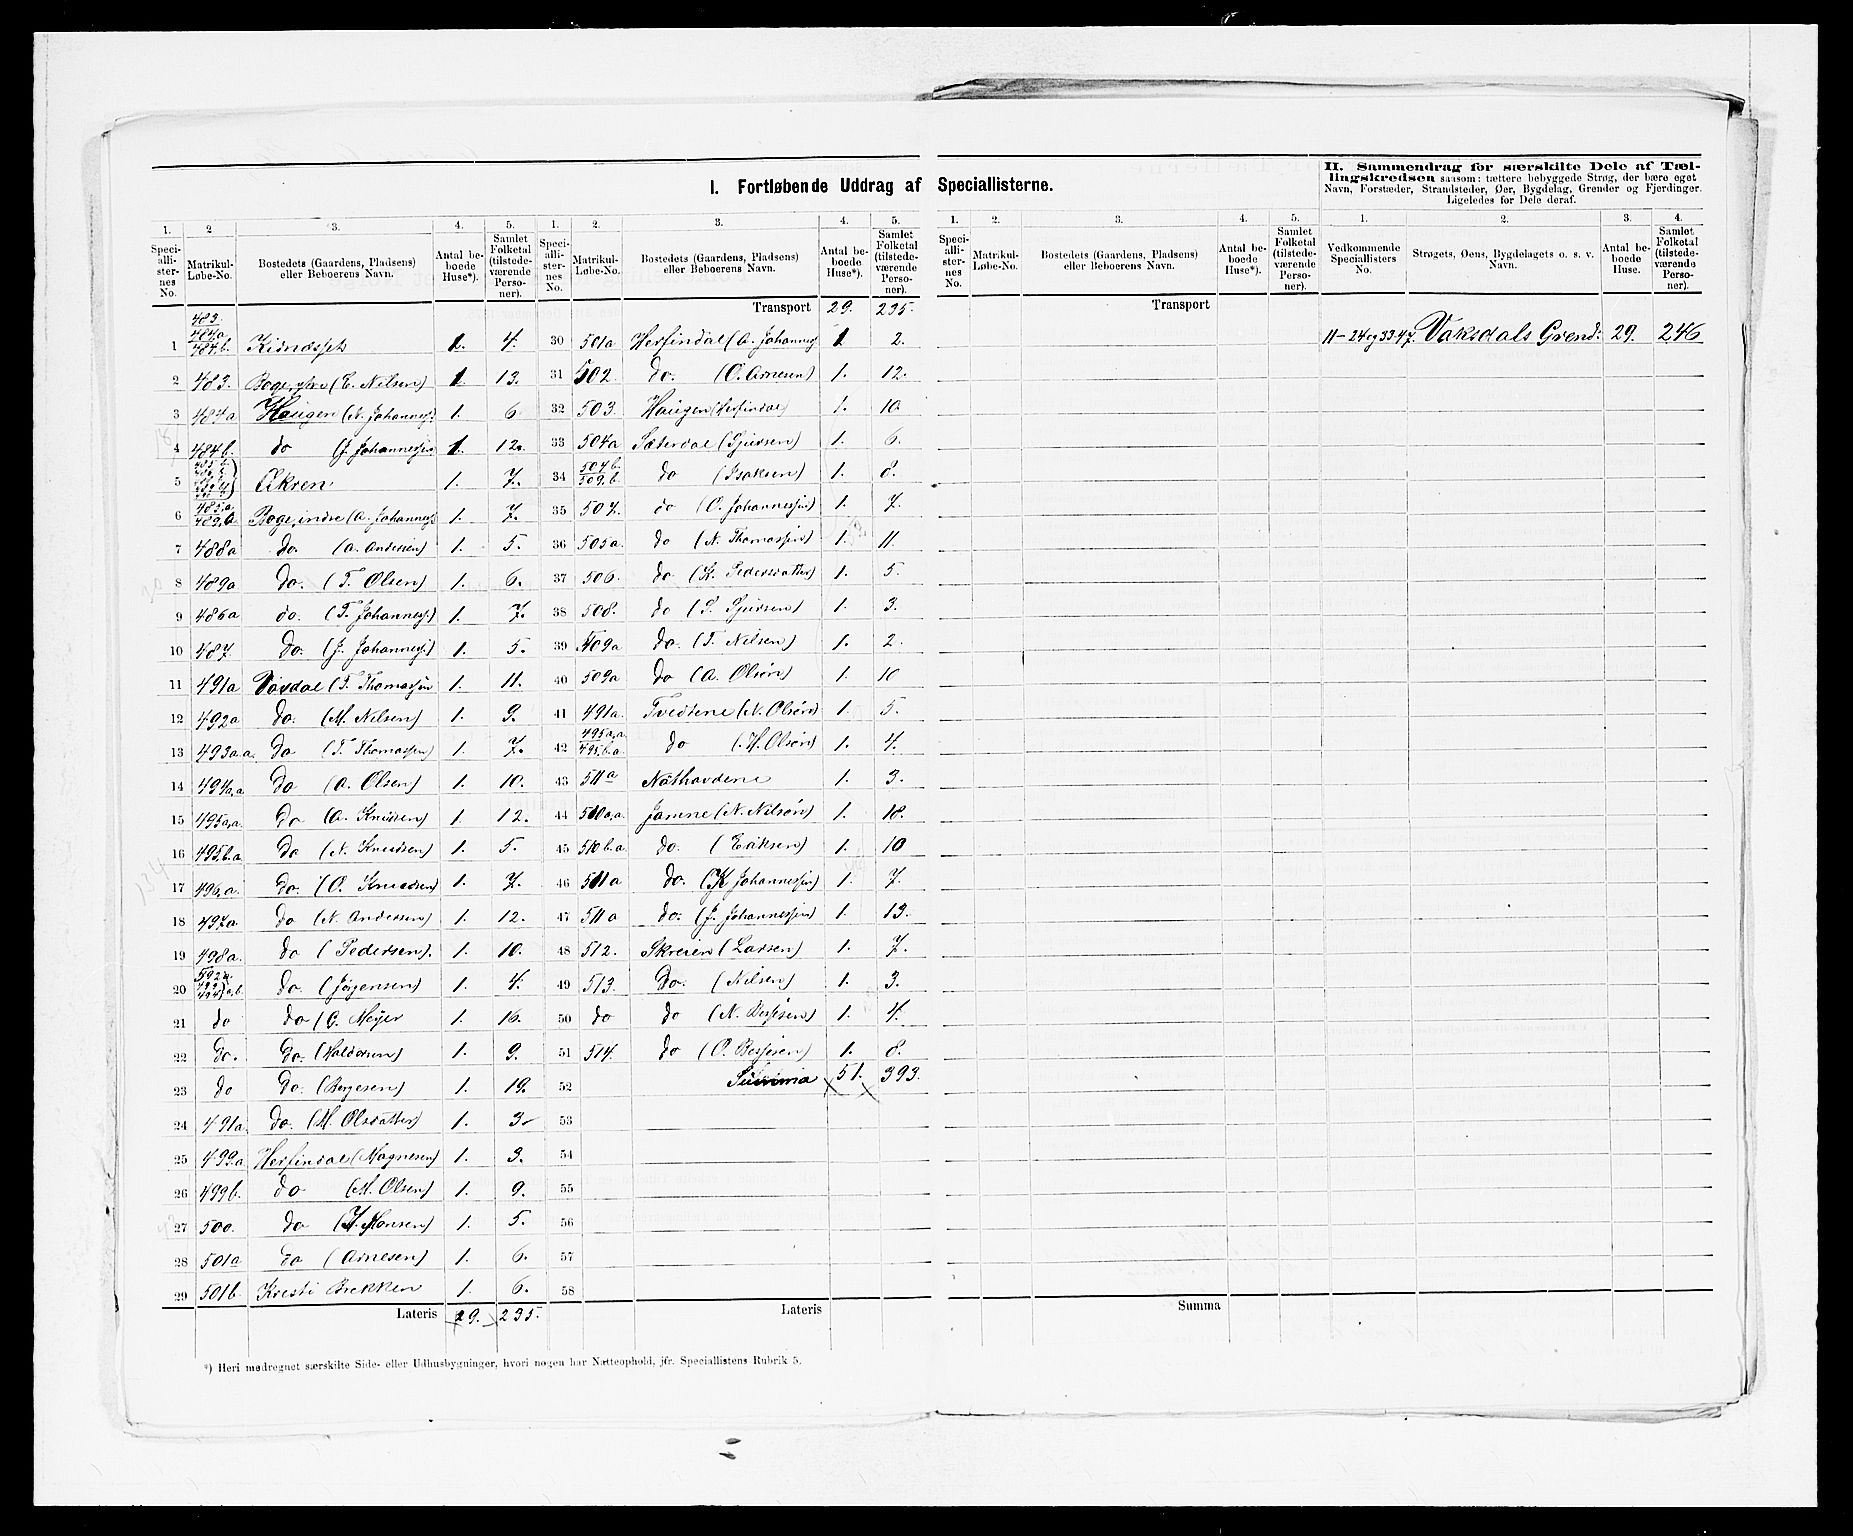 I. Fortløbende Uddrag af Speciallisterne.
II. Sammendrag for særskilte Dele af Tæl-
lingskredsen saasom: tættere bebyggede Strøg, der bære eget
Navn, Forstæder, Strandsteder, Øer, Bygdelag, Grender og Fjerdinger.
Ligeledes for Dele deraf.
1. 2 3. 4. 5. 1. 2. 3. 4. 5. 1. 2. 3. 4. 5. 1. 2. 3. 4.
Speciallisternes No. Matrikul-Løbe-No. Bostedets (Gaardens, Pladsens) eller Beboerens Navn. Antal beboede Huse*). Samlet Folketal (tilstedeværende Personer).
Speciallisternes No. Matrikul-Løbe-No. Bostedets (Gaardens, Pladsens) eller Beboerens Navn. Antal beboede Huse*). Samlet Folketal (tilstedeværende Personer).
Speciallisternes No. Matrikul-Løbe-No. Bostedets (Gaardens, Pladsens) eller Beboerens Navn. Antal beboede Huse*). Samlet Folketal (tilstedeværende Personer).
Vedkommende Speciallisters No. Strøgets, Øens, Bygdelagets o. s. v. Navn. Antal beboede Huse. Samlet Folketal (tilstedeværende Personer).
1 483. 484a 484b. 1. 4.
2 483. Boge, ytre (E. Nilsen) 1 13.
3 484a Haugen (N. Johanness.) 1. 6
4 484b. do (J. Johannessen 1. 12.
5 Ekren 1. 7.
6 485.a 489.b Boge, indre (A. Johanness) 1. 7.
7 488a do. (A. Andersen) 1. 5.
8 489a do. (T. Olsen) 1. 6.
9 486a do. (T. Johanness.) 1. 7.
10 487. do. (J. Johanness.) 1. 5.
11 491a Vaxdal (T. Thomassen 1. 11.
12 492a do. (M. Nilsen) 1. 9.
13 493a.a. do (T. Thomassen) 1. 7.
14 494a,a do (A. Olsen) 1. 10.
15 495a,a. do (A. Knudsen) 1. 12.
16 495.b.a do (N. Knudsen) 1. 5.
17 496,a. do. (O. Knudsen) 1. 7.
18 497a. do (N. Andersen) 1. 12.
19 498a. do (Pedersen). 1. 10.
20 do. (Jørgensen) 1. 4.
21 do do (G. Meyer 1. 16.
22 do. do. (Haldorsen) 1. 9.
23 do do. (Bergesen) 1. 19.
24 491a. do. (M. Olsdatter) 1. 3
25 499.a Herfindal (Magnesen) 1. 3.
26 499b. do (M. Olsen) 1. 9.
27 500. do (H. Hansen) 1. 5.
28 501a do (Arnesen) 1. 6.
29 501b. Kresti Brekken 1. 6.
Lateris 29. 235.
Transport 29. 235.
30 501a Herfindal (A. Johannes) 1 2.
31 502. do. (O. Arnesen) 1. 12.
32 503. Haugen (Herfindal) 1. 10
33 504a Sæterdal (Sjursen) 1. 6.
34 504b. 509.b. do (Isaksen) 1. 8.
35 507. do (O. Johannessen) 1. 7.
36 505a. do (N. Thomassen) 1. 11.
37 506. do (K. Pedersdatter) 1. 5
38 508. do (S. Sjursen) 1. 3.
39 509a do. (T. Nilsen) 1. 2.
40 509a do (A. Olsøn) 1. 10
41 491a. Tvedtene (N. Olsøn) 1. 5.
42 495a,a. 495.b.a. do (H. Olsøn) 1. 4.
43 511a Nåthovdene 1. 3.
44 510a,a. Jamne (N. Nilsøn) 1. 18.
45 510b.a. do. (Eriksen) 1. 10
46 511a do. (K Johannessen) 1. 7.
47 511a do. (J. Johannessen) 1. 13.
48 512. Skreien (Larsen) 1. 7.
49 513. do. (Nilsen) 1. 3.
50 do do (N. 1. 4.
51 514. do (O. 1. 8.
52 Summa 51. 393.
53
54
55
56
57
58
Lateris
Transport
Summa
11-24 og 33-47. Vaksdals Grend: 29. 246
*) Heri medregnet særskilte Side- eller Udhusbygninger, hvori nogen har Natteophold, jfr. Speciallistens Rubrik 5.